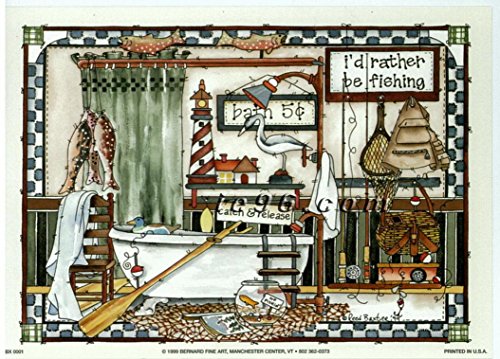 I'd rather
be fishing
bath 5¢
tc96.com
catch & release
© Reed Baxter
BX 0001
© 1999 BERNARD FINE ART, MANCHESTER CENTER, VT • 802 362-0373
PRINTED IN U.S.A.